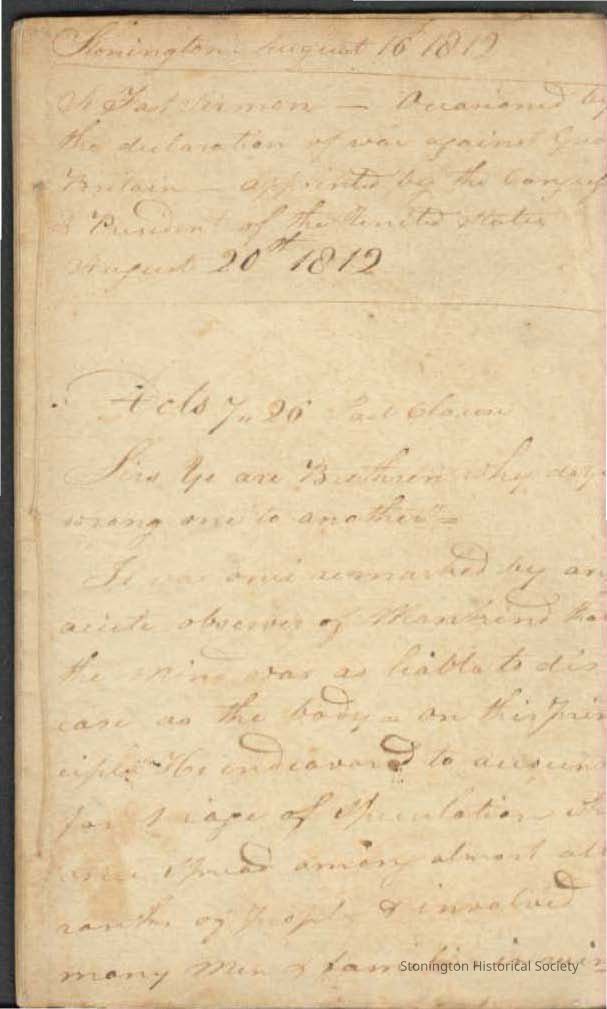 Stonington August 16 1812
A Fast Sermon — Occasioned by
the declaration of war against Grea
Britain — appointed by the Congres
& President of the United States
August 20th 1812
Acts 7,, 26 Last Clause
Sirs Ye are Brethren why do ye
wrong one to another" =
It was once remarked by an
acute observer of Mankind tha
the mind was as liable to dis
ease as the body = on this prin
ciple He endeavored to accoun
for rage of Speculation
once spread among almost al
ranks of people & involved
many Men & families in ruin
Stonington Historical Society